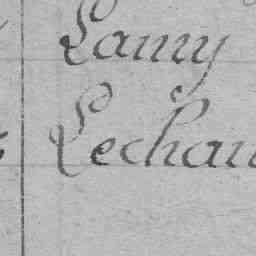 Lamy
Lechau